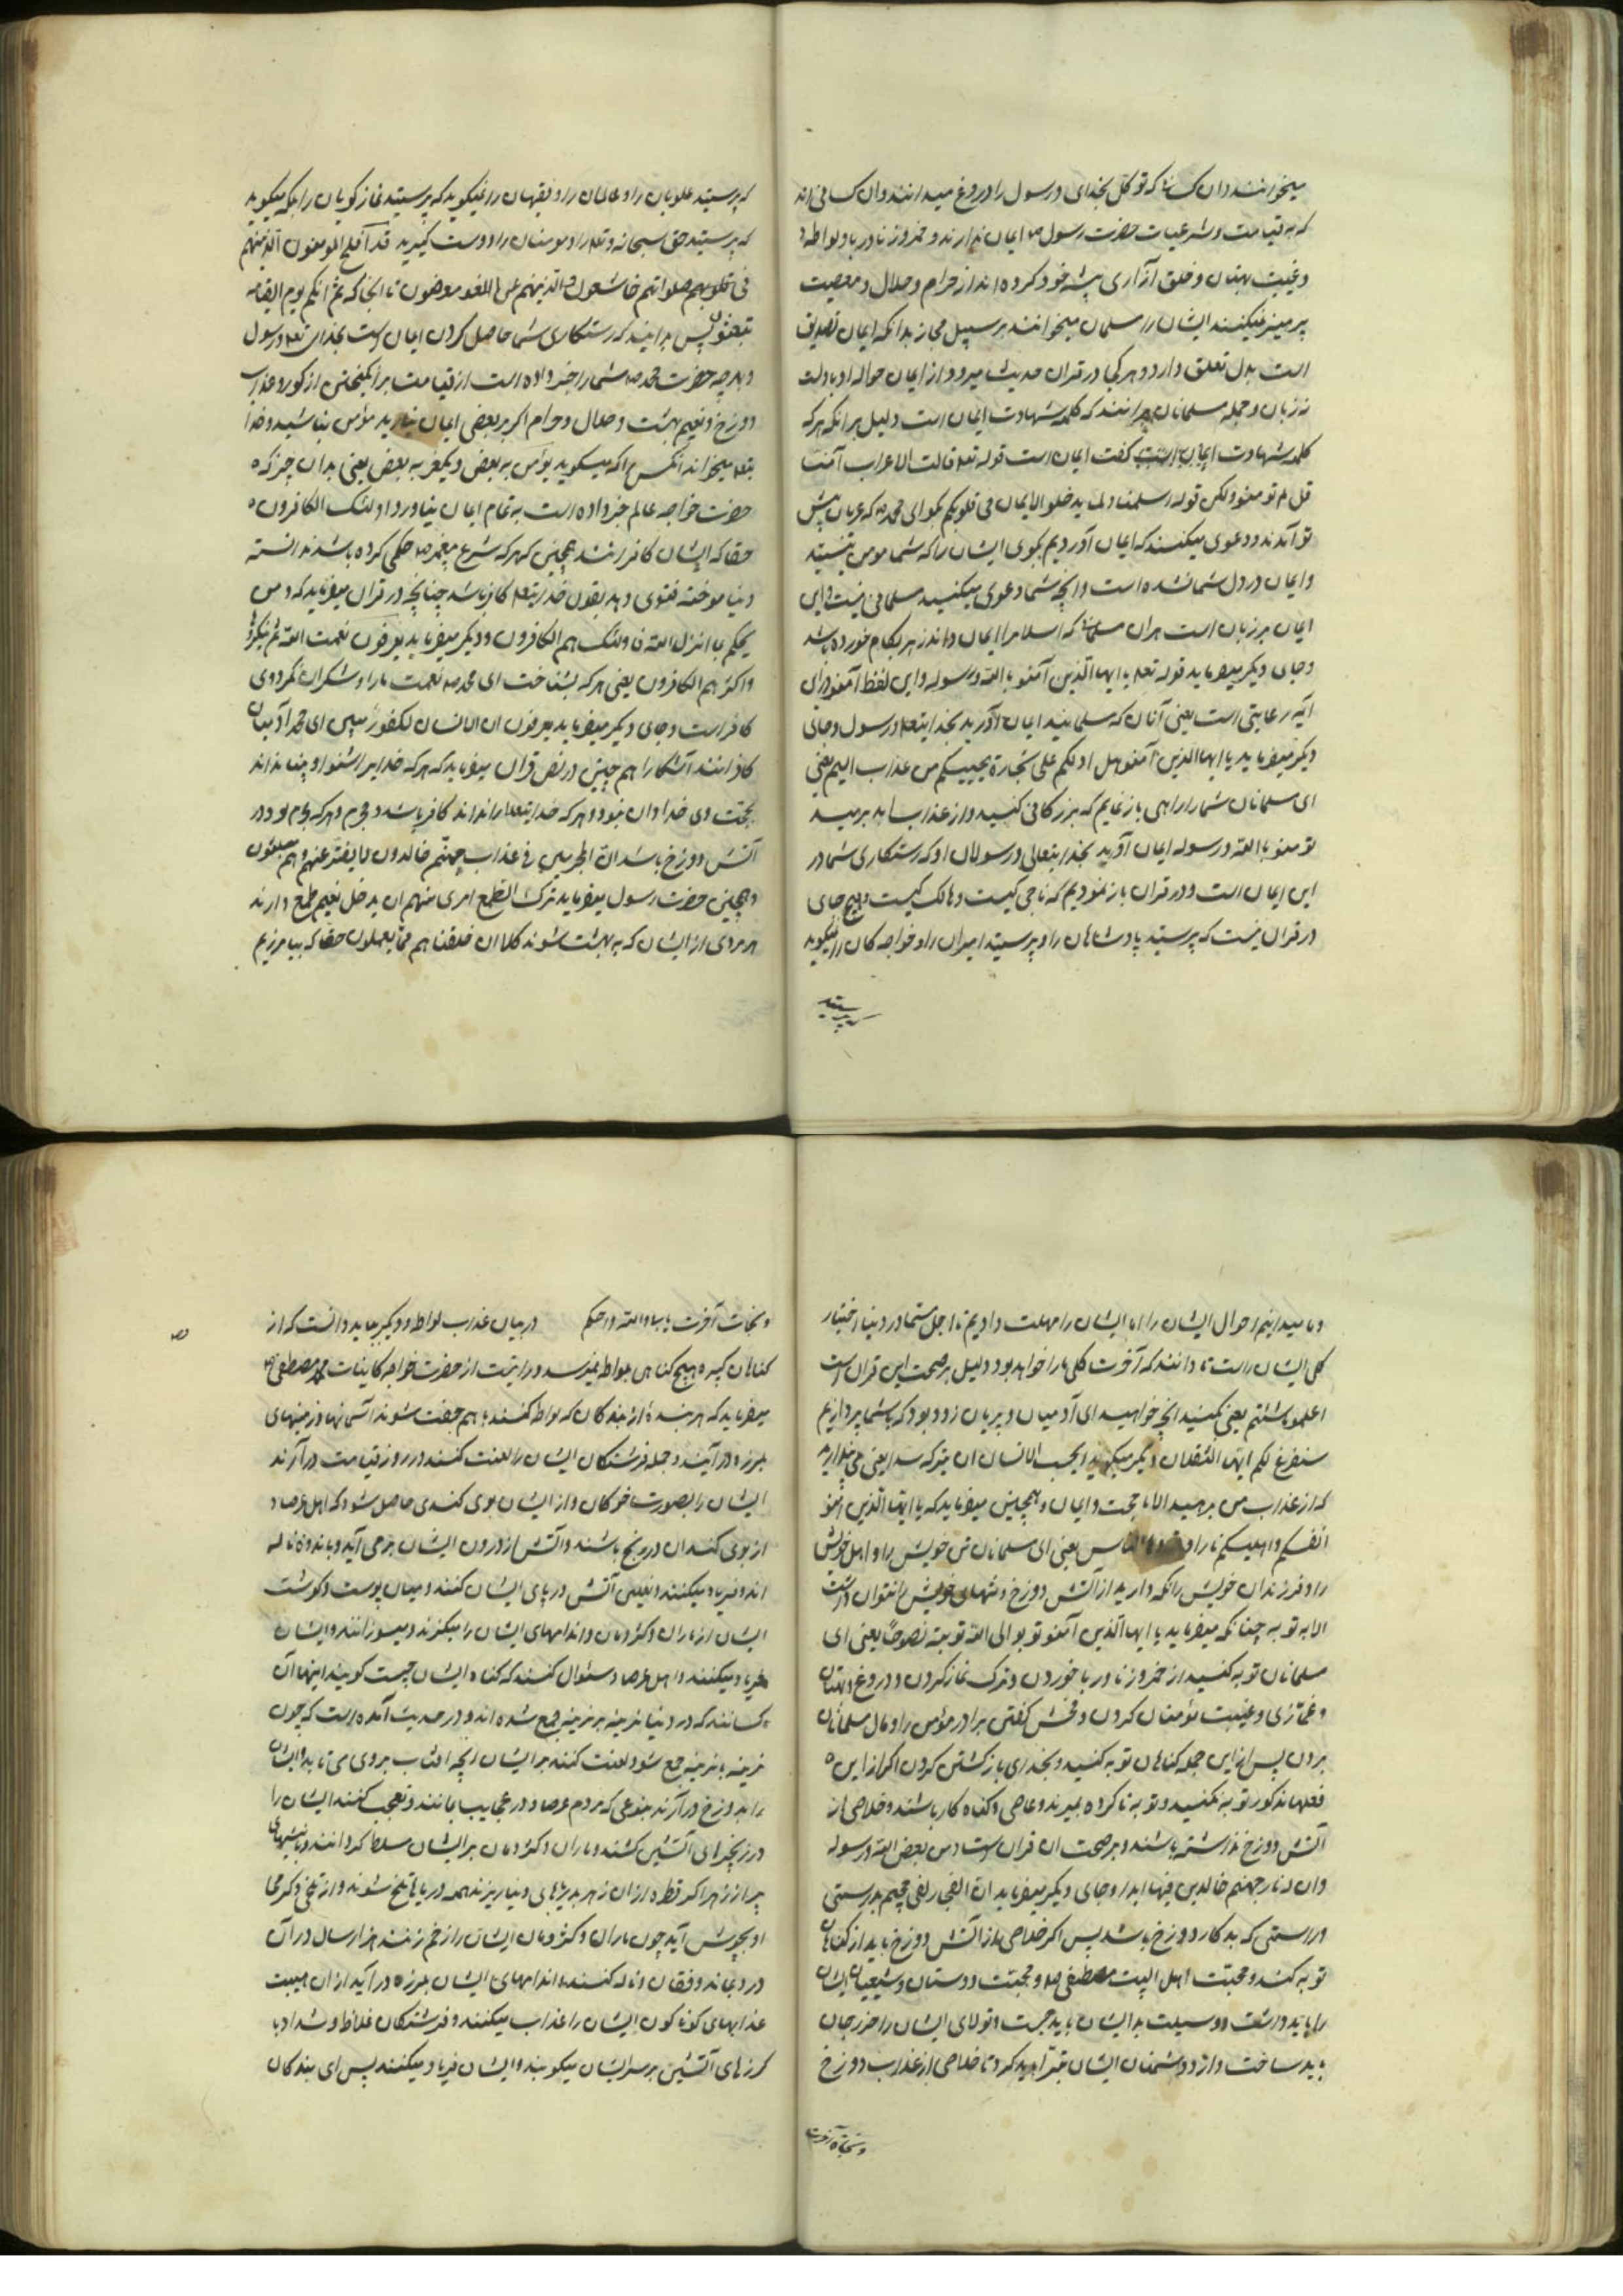 میخوانند و ان کسانی که توکل بخدای و رسول را دروغ میدانند و ان کسانی اند
که به قیامت و شرعیات حضرت رسول ص ایمان ندارند و خمر و زنا و ربا و لواطه
و غیبت بهتان و خلق آزاری پیشه خود کرده اند از حرام و حلال و معصیت
پرهیز نمیکنند ایشان را مسلمان میخوانند بر سبیل مجاز بدانکه ایمان تصدیق
است بدل تعلق دارد و هر کجا در قران حدیث میرود از ایمان حواله او با دلست
نه زبان و جمله مسلمانان برانند که کلمه شهادت ایمان است دلیل بر انکه هر که
کلمه شهادت گفت ایمان است قوله تعه قالت الاعراب آمنا
قل لم تومنو ولکن قوله اسلمنا و لما یدخلو الایمان فی قلوبکم بگو ای محمد ص که عربان پیش
تو آمدند و دعوی میکنند که ایمان آوردیم بگوی ایشان را که شما مومن نیستید
و ایمان در دل شما نشده است و انچه شما دعوی میکنید مسلمانی نیست و این
ایمان بر زبان است هران مسلمانی که اسلام را ایمان داند زهر بکام خورده باشد
و جای دیگر میفرماید قوله تعه یا ایها الذین آمنو باالله و رسوله و این لفظ آمنو درین
آیه رعایتی است یعنی آنان که مسلمانید ایمان آورید بخدایتعه و رسول و جای
دیگر میفرماید یا ایها الذین آمنو هل ادلکم علی تجارة یجییکم من عذاب الیم یعنی
ای مسلمانان شما را راهی باز نمایم که بزرکانی کنید و از عذاب برهید
تومنو باالله و رسوله ایمان آورید بخدایتعالی و رسولان او که رستکاری شما در
این ایمان است و در قران باز نمودیم که ناجی کیست و هالک کیست و هیچ جای
در قران نیست که پرستید پادشاهان را و پرستید امیران را و خواجه کان را نمیکوید
که پرستید
که پرستید علویان را و عالمان را و فقیهان را و نمیکوید که پرستید نماز کویان را بلکه میکوید
که پرستید حق سبحانه و تعه را و مومنان را دوست کیرید قد آفلح المومنون الذینهم
فی قلوبهم صلواتهم خاشعون و الذینهم عن اللغو معرضون تا انجا که ثم انکم یوم القیمه
تبعثون پس بدانید که رستکاری شما حاصل کردن ایمان است بخدای تعه و رسول
و بهر چه حضرت محمد ص شما را خبر داده است از قیامت برانکیختن از کور و عذاب
دوزخ و نعیم بهشت و حلال و حرام اکر بر بعضی ایمان نیارید مؤمن نباشید و خدا
یتعه میخواند آنکس را که میکوید یؤمن به بعض و یکفر به بعض یعنی بدان چیز که
حضرت خواجه عالم خبر داده است به تمام ایمان نیاورد اولئک الکافرون
حقا که ایشان کافرانند همچنین که هر که شرع پیغمبر ص حکمی کرده باشد ندانسته
و نیاموخته فتوی دهد بقول خدایتعه کافر باشد چنانچه در قران میفرماید که و من
یحکم بما انزل الله فاولئک هم الکافرون و دیگر میفرماید یعرفون نعمت الله ثم ینکرونها
و اکثرهم الکافرون یعنی هر که بشناخت ای محمد ص نعمت ما را و شکران نکرد وی
کافر است و جای دیگر میفرماید یعرفون ان الانسان لکفور مبین ای محمد آدمیان
کافرانند آشکارا هم چنین در نص قران میفرماید که هر که خدایرا شنود و نداند
بحجت وی خدادان نبود و هر که خدایتعه را نداند کافر باشد و مجرم و هر که مجرم بود در
آتش دوزخ باشد ان المجرمین فی عذاب جهنم خالدون لا یفتر عنهم و هم مبلسون
و همچنین حضرت رسول میفرماید ترک الطمع امری منهم ان یدخل نعیم طمع دارند
هر مردی از ایشان که به بهشت شوند کلا ان خلقناهم مما یعملون حقا که بیامرزیم
و ما میدانیم احوال ایشان را اما ایشان را مهلت دادیم تا اجل مسما در دنیا اختیار
کلی ایشان راست تا دانند که آخرت کلی ما را خواهد بود و دلیل بر صحت این قران است
اعلمو ماشئتم یعنی بکنید انچه خواهید ای آدمیان و پریان زود بود که با شما پردازیم
سنفرغ لکم ایها الثقلان و دیگر میکوید ایحسب الانسان ان یترکه سدا یعنی می پندارید
که از عذاب من برهید الا با حجت و ایمان و همچنین میفرماید که یا ایها الذین آمنو
انفسکم و اهلیکم نارا وقودها الناس یعنی ای مسلمانان تن خویش را و اهل خویش
را و فرزندان خویش را نکه دارید از آتش دوزخ و تنهای خویش را نتوان داشت
الا به توبه چنانکه میفرماید یا ایها الذین آمنو توبو الی الله توبته نصوحا یعنی ای
مسلمانان توبه کنید از خمر و زنا و ربا خوردن و ترک نماز کردن و دروغ و بهتان
و غمازی و غیبت مؤمنان کردن و فحش کفتن برادر مؤمن را و مال مسلمانان
بردن پس از این جمله کناهان توبه کنید و بخدای بازکشتن کردن اکر از این
فعلهای مذکور توبه نکنید و توبه ناکرده بمیرند و عاصی و کناه کار باشند و خلاصی از
آتش دوزخ نداشته باشند و بر صحت ان قران است و من یعص الله و رسوله
و ان له نار جهنم خالدین فیها ابدا و جای دیگر میفرماید ان الفجار لفی جحیم بدرستی
و راستی که بدکار دوزخ باشد پس اکر خلاصی از آتش دوزخ باید از کناهان
توبه کند و محبت اهل البیت مصطفی ص و محبت دوستان و شیعیان ایشان
را باید داشت و وسیلت بدایشان باید جست و تولای ایشان را حرز جان
باید ساخت و از دوشمنان ایشان تبرا باید کرد تا خلاصی از عذاب دوزخ
و نجات آخرت
و نجات آخرت بیابد والله واحکم در بیان عذاب لواطه و دیگر بباید دانست که از
کناهان کبیره هیچ کناهی بلواطه نمیرسد و روایت از حضرت خواجه کاینات محمد مصطفی ص
میفرماید که هر بنده از بندکان که لواطه کنند با هم جفت شوند آسمانها و زمینهای
بلرزه در آیند و جمله فرشتکان ایشان را لعنت کنند و در روز قیامت در آرند
ایشان را بصورت خوکان و از ایشان بوی کندی حاصل شود که اهل عرصاد
از بوی کند ان در رنج باشند و آتش از درون ایشان بر می آید و باندوه ناله
اند و فریاد میکنند و نعلین آتش در پای ایشان کنند و میان پوست و کوشت
ایشان از ماران و کژدمان و اندامهای ایشان را میکزند و میسوزانند و ایشان
فریاد میکنند و اهل عرصاد سئوال کنند که کناه ایشان چیست کویند اینها آن
کسانند که در دنیا نرینه بر نرینه جمع شده اند و در حدیث آمده است که چون
نرینه با نرینه جمع شود لعنت کنند بر ایشان انچه افتاب بر وی می تابد و ایشان
را بدوزخ در آرند بنوعی که مردم عرصاد در عجایب بمانند و تعجب کنند ایشان را
در زنجیرهای آتشین کشند و ماران و کژدمان بر ایشان مسلط کردانند و نیشهای
پر از زهر اکر قطره از ان زهر بدریاهای دنیا ریزند همه دریاها تلخ شوند و از تلخی و کرمی
او بجوش آید چون ماران و کژدمان ایشان را زخم زنند هزار سال در آن
درد بمانند و فغان و ناله کنند و اندامهای ایشان بلرزه در آید از ان هیبت
عذابهای کوناکون ایشان را عذاب میکنند و فرشتکان غلاظ و شداد با
کرزهای آتشین بر سر ایشان میکوبند و ایشان فریاد میکنند پس ای بندکان